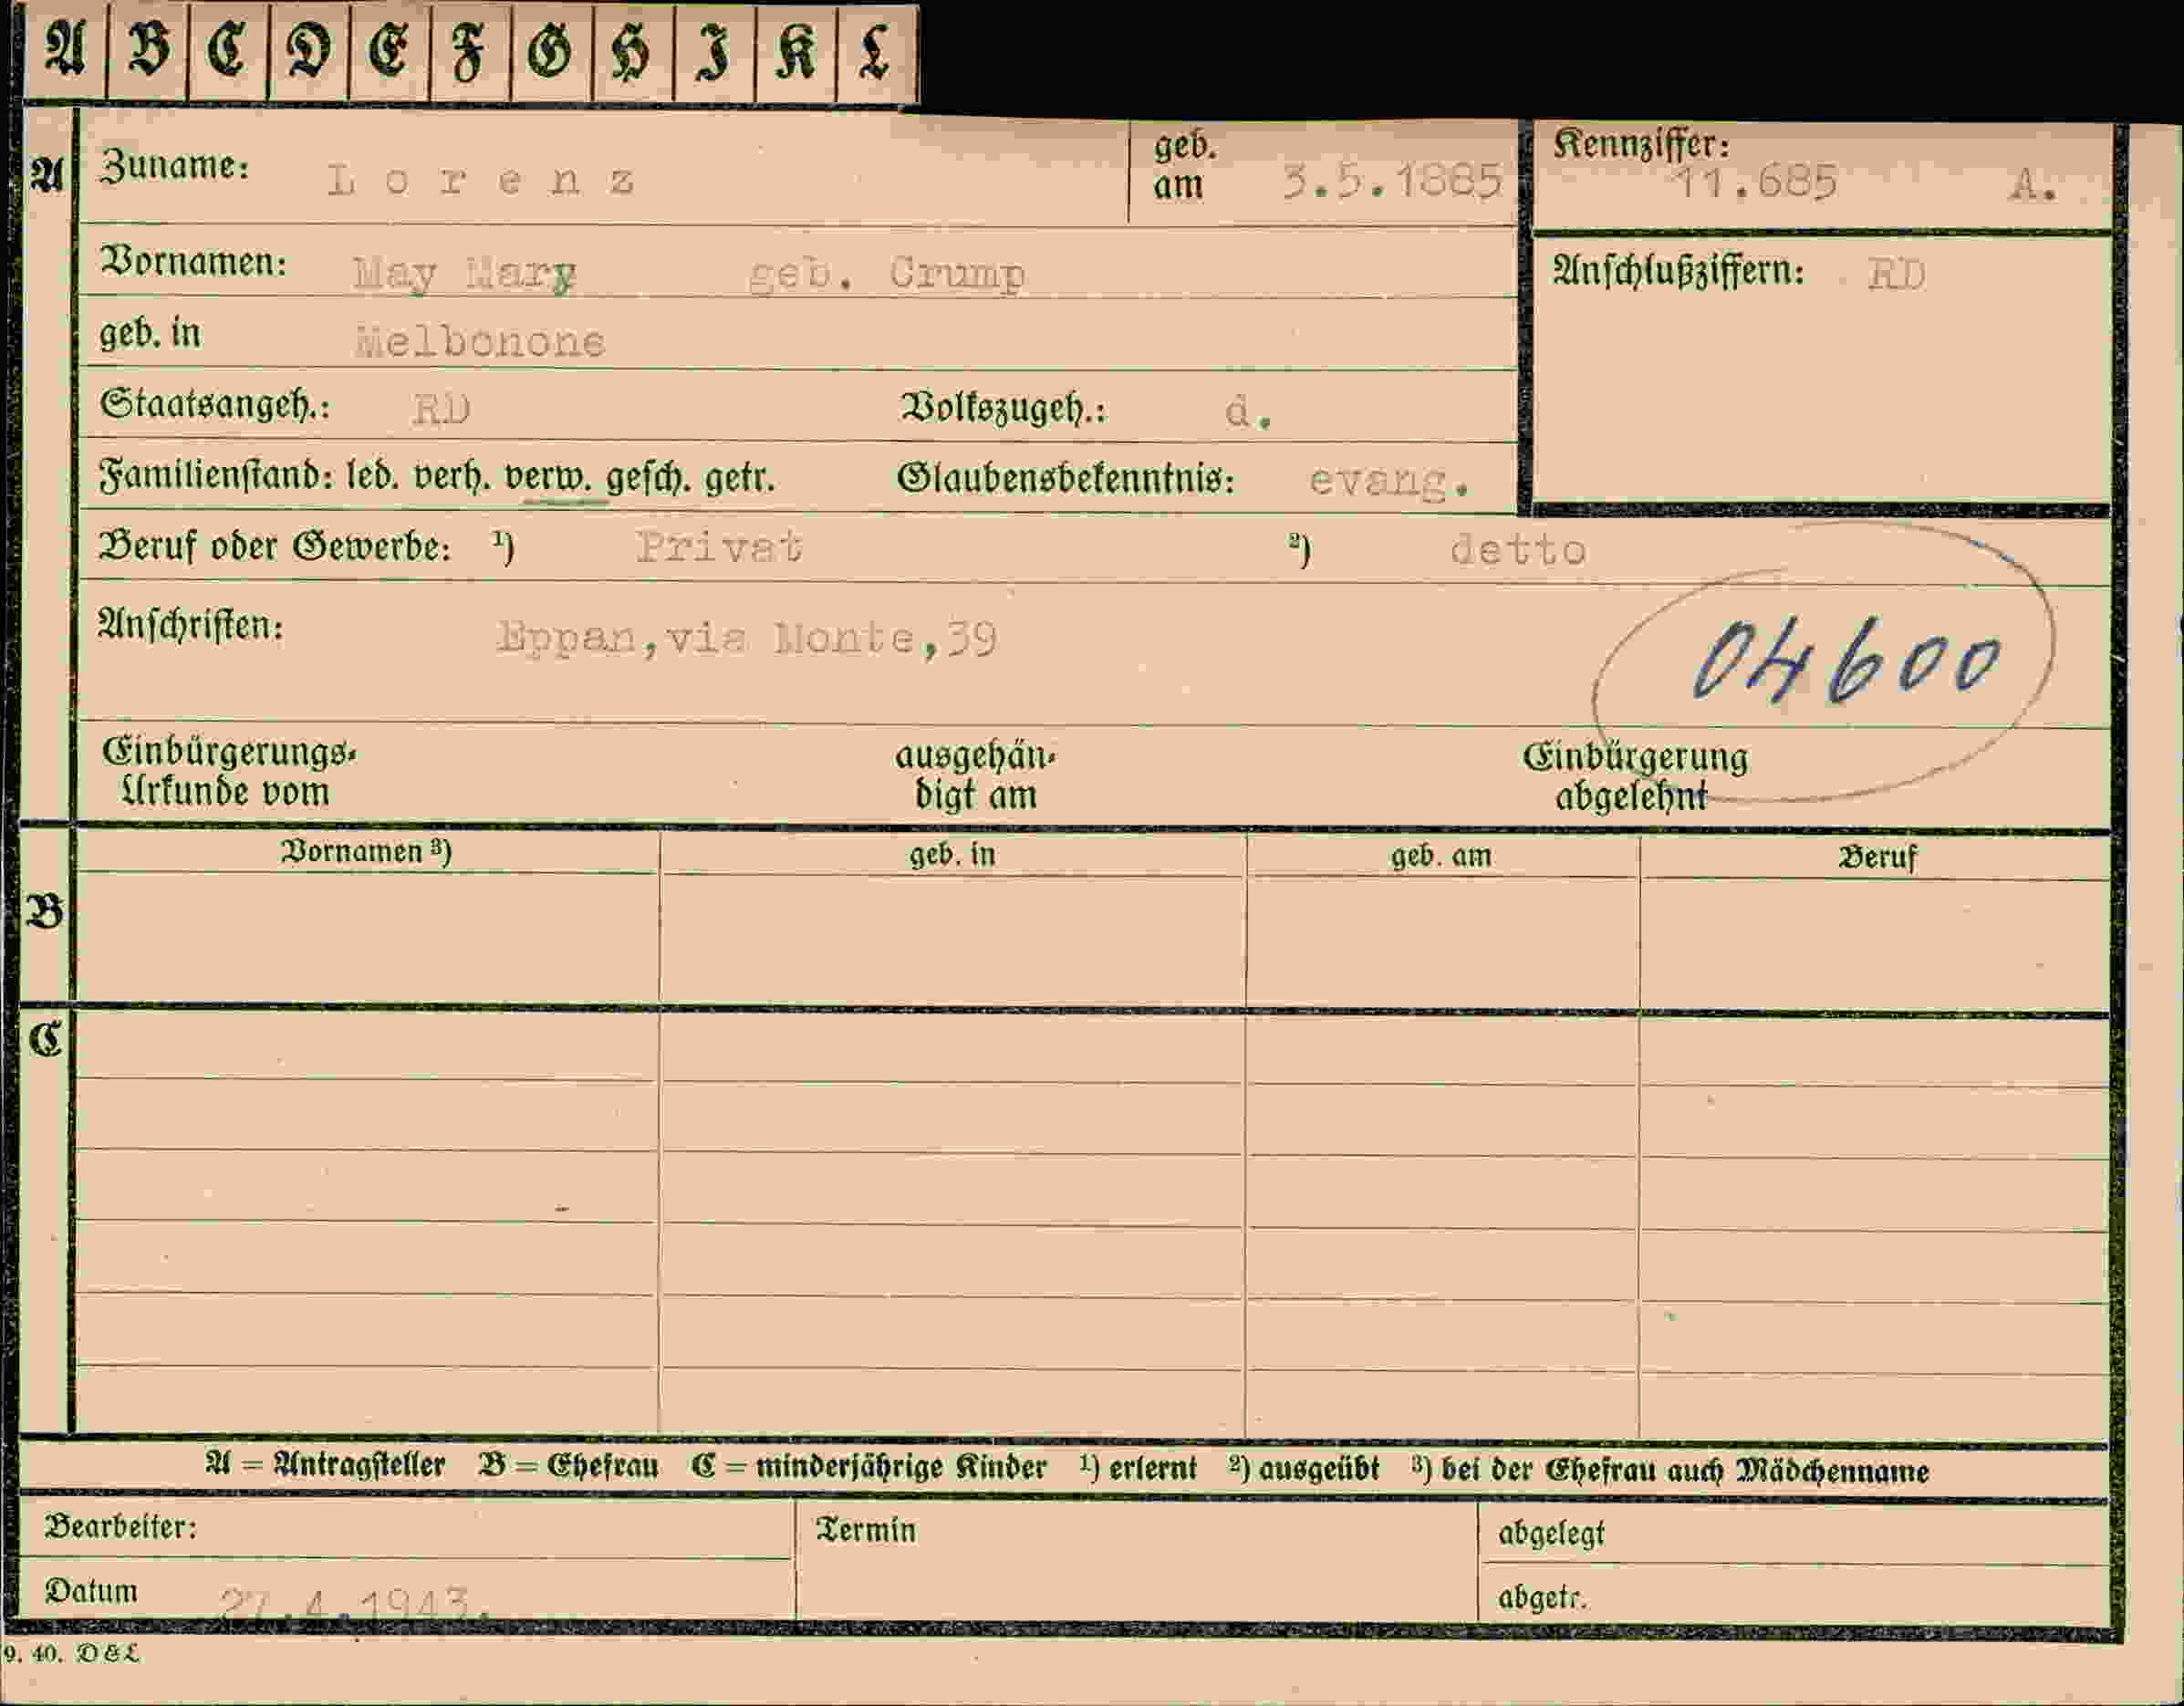 A B C D E F G H I K L
A Zuname: Lorenz geb. am 3.5.1885 Kennziffer: 11.685 A.
Vornamen: May Mary geb. Crump Anschlußziffern: RD
geb. in Melbonone
Staatsangeh.: RD Volkszugeh.: d.
Familienstand: led. verh. verw. gesch. getr. Glaubensbekenntnis: evang.
Beruf oder Gewerbe: ¹) Privat ²) detto
Anschriften: Eppan,via Monte,39
04600
Einbürgerungs- ausgehän- Einbürgerung
Urkunde vom digt am abgelehnt
Vornamen ³) geb. in geb. am Beruf
B
C
A = Antragsteller B = Ehefrau C = minderjährige Kinder ¹) erlernt ²) ausgeübt ³) bei der Ehefrau auch Mädchenname
Bearbeiter: Termin abgelegt
Datum 27.4.1943. abgetr.
9. 40. D&L